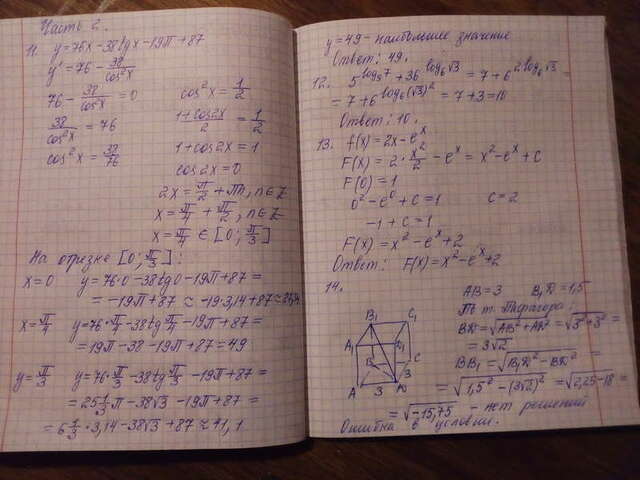 Часть 2.
11. y=76x-38tgx-19π+87
y'=76-38/cos²x
76-38/cos²x=0
38/cos²x=76
cos²x=38/76
cos²x=1/2
1+cos2x/2=1/2
1+cos2x=1
cos2x=0
2x=π/2+πn, n∈Z
x=π/4+π/2, n∈Z
x=π/4∈[0;π/3]
На отрезке [0;π/3]:
x=0 y=76·0-38tg0-19π+87=
=-19π+87≈-19·3,14+87≈
x=π/4 y=76·π/4-38tgπ/4-19π+87=
=19π-38-19π+87=49
y=π/3 y=76·π/3-38tgπ/3-19π+87=
=25 1/3π-38√3-19π+87=
=6 1/3·3,14-38√3+87≈41,1
y=49-наибольшее значение
Ответ: 49.
12. 5^log₅7+36^log₆√3=7+6^2log₆√3=
=7+6^log₆(√3)²=7+3=10
Ответ: 10.
13. f(x)=2x-e^x
F(x)=2·x²/2-e^x=x²-e^x+C
F(0)=1
0²-e⁰+C=1 C=2
-1+C=1
F(x)=x²-e^x+2
Ответ: F(x)=x²-e^x+2
14.
AB=3 B₁D=1,5
По т. Пифагора:
BD=√AB²+AD²=√3²+3²=
=3√2
BB₁=√B₁D²-BD²=
=√1,5²-(3√2)²=√2,25-18=
=√-15,75 - нет решений
Ошибка в условии.
B₁ C₁
A₁
B C
3
A 3